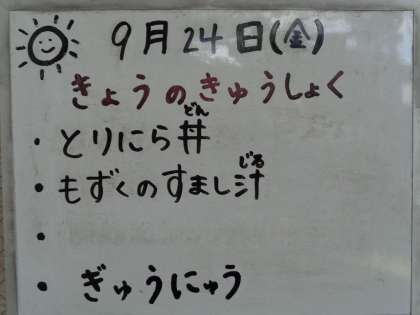 9月24日(金)
きょうのきゅうしょく
・とりにら丼
どん
・もずくのすまし汁
じる
・
・ぎゅうにゅう